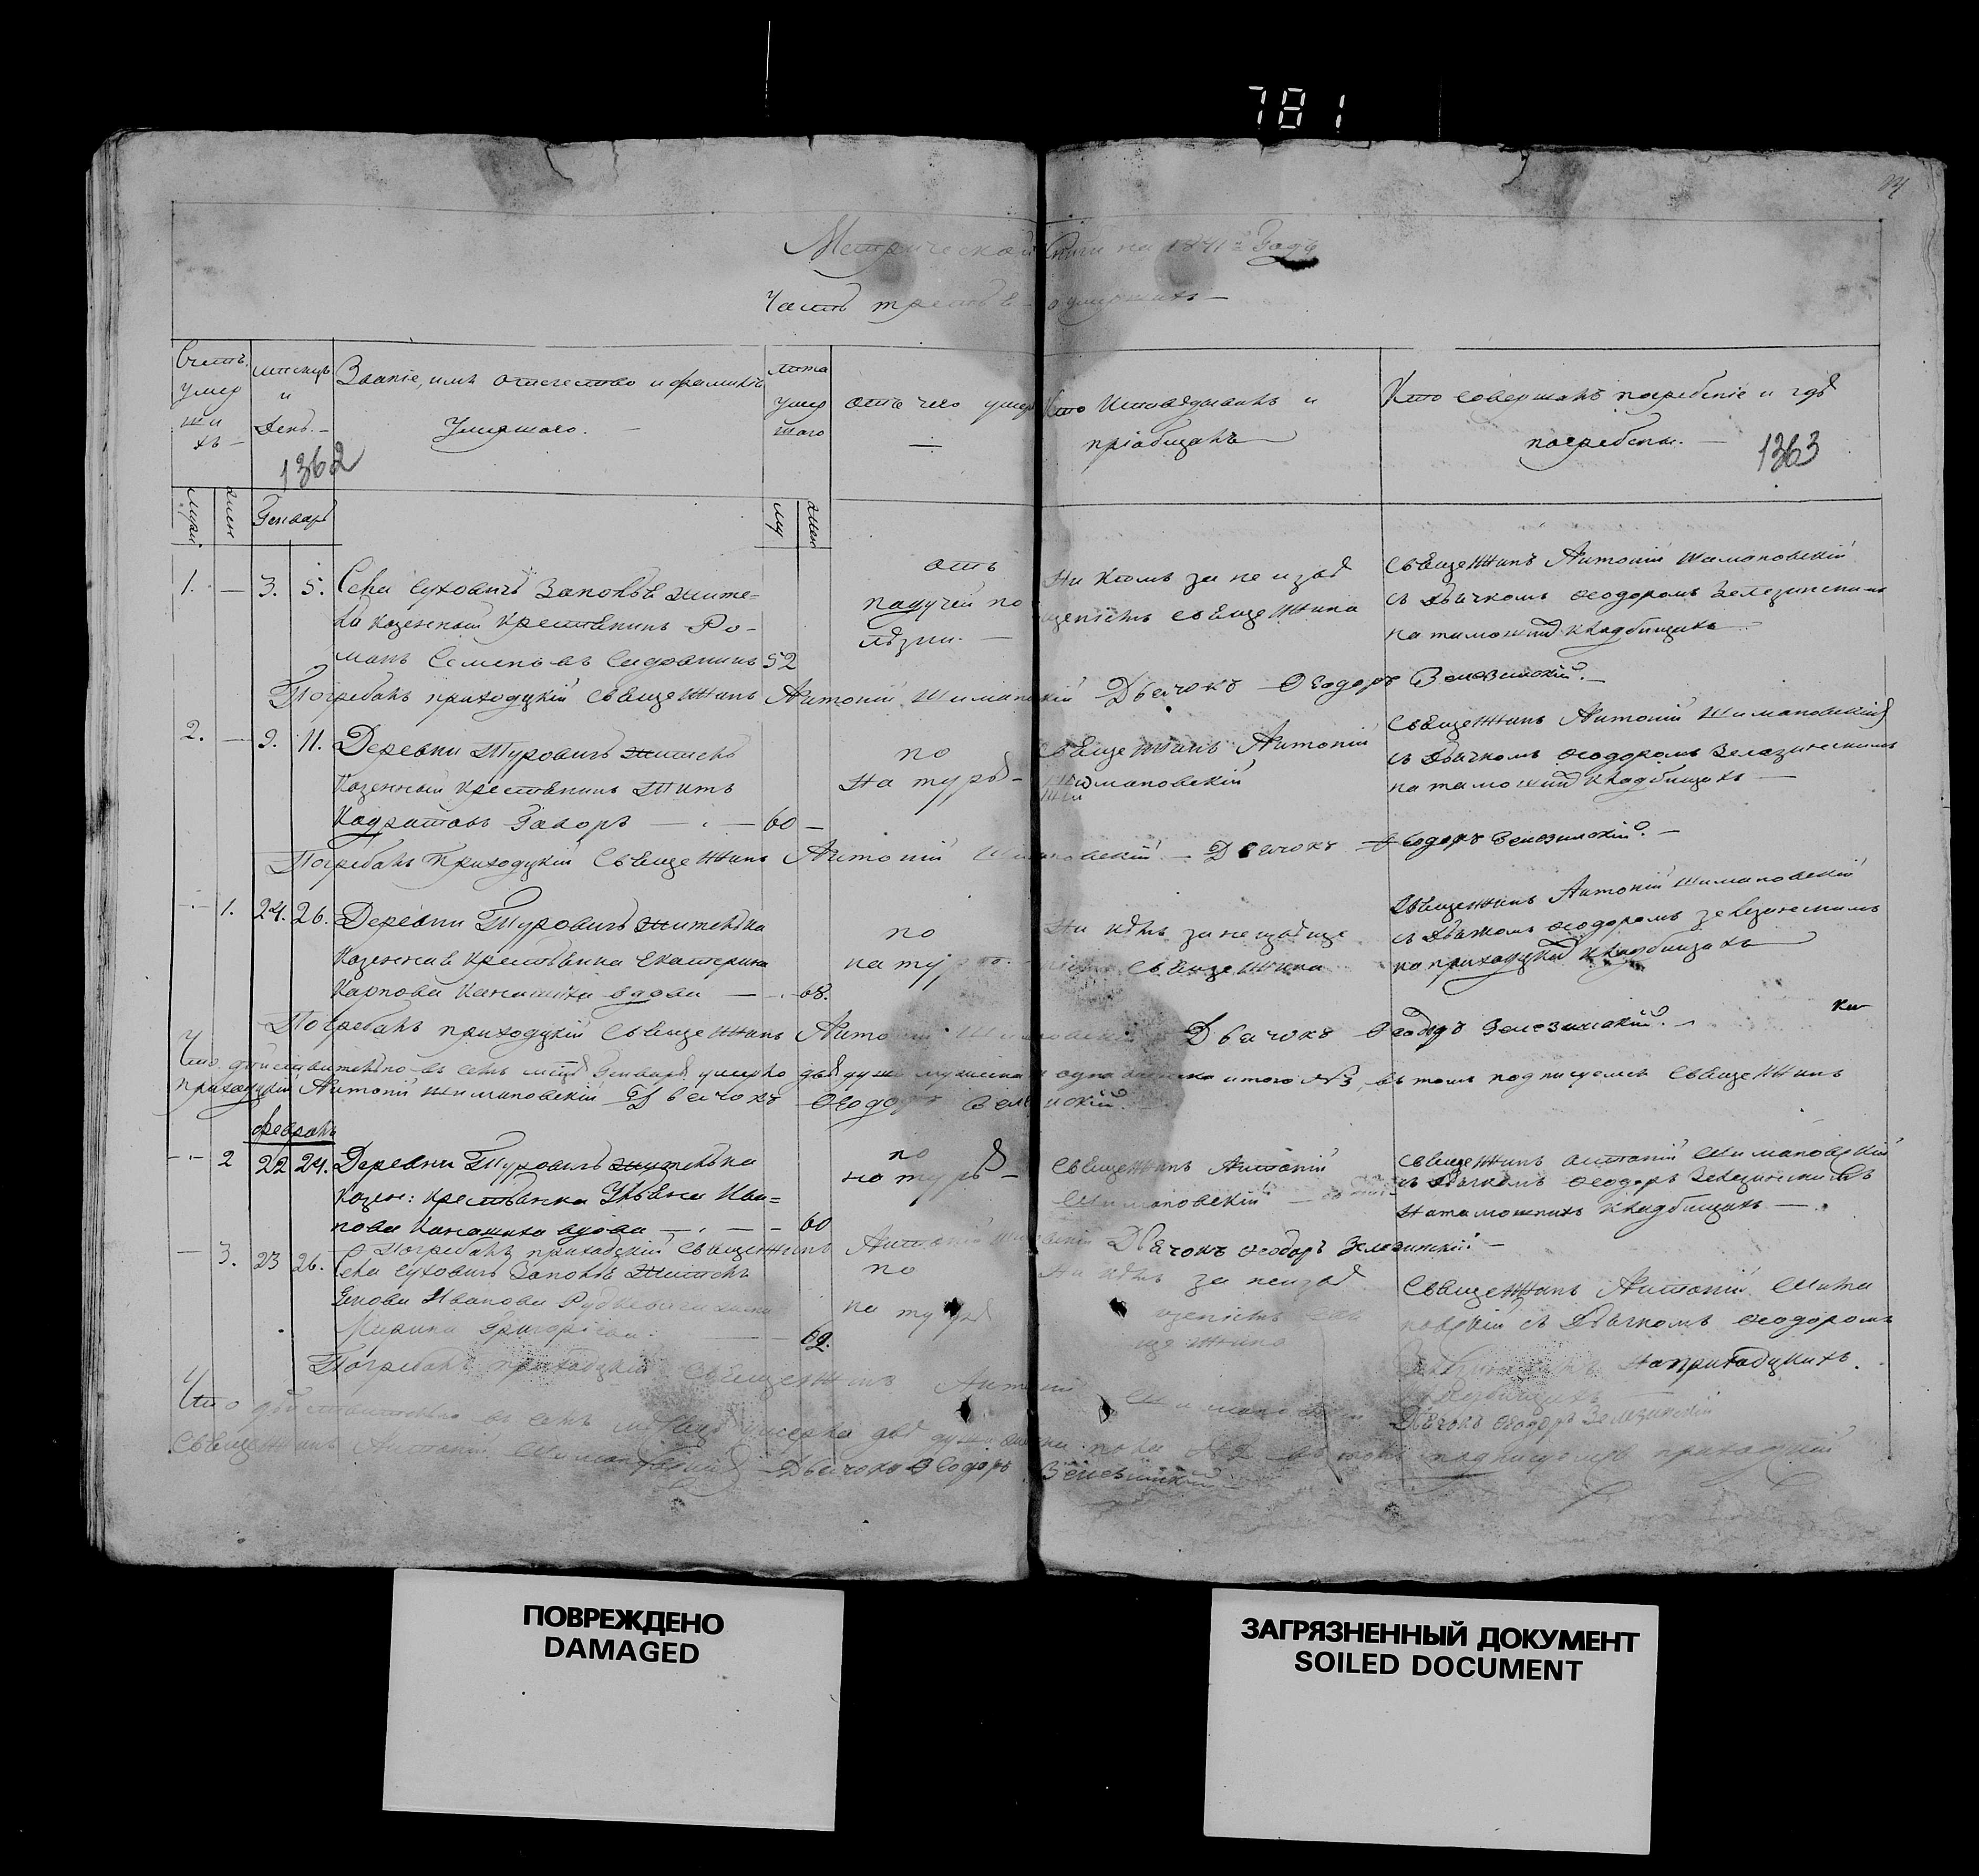 781
Метрической Книги на 1841й Годъ
Часть третья о умершихъ —
Счетъ умер ши хъ —
мѣсяцъ и День. —
Званіе, имя отчество и фамилія Умершаго. —
лѣта умер шаго
отъ чего умеръ —
Кто Исповѣдывалъ и пріобщалъ
Кто совершалъ погребеніе и гдѣ погребены. —
1362
1363
муж. жен Генварь му жен
1. — 3. 5. Села Суховичъ Заполья жите=
ль казенный крестьянинъ Ро-
манъ Семеновъ 52
отъ
падучей бо
лѣзни. —
Ни кѣмъ за не извѣ
щеніемъ священника
священникъ Антоній Шимановскій
съ дьячкомъ Феодоромъ Зелезинскимъ
на тамошнихъ кладбищахъ
Погребалъ приходскій священникъ Антоній Шимановскій Дьячокъ Феодоръ Зелезинскій. —
2. — 9. 11. Деревни Туровичъ житель
казенный крестьянинъ Титъ
60 —
по
натурѣ —
священникъ Антоній
Шимановскій
Ши
священникъ Антоній Шимановскій
съ дьячкомъ Феодоромъ Зелезинскимъ
на тамошнихъ кладбищахъ —
Погребалъ Приходскій священникъ Антоній Шимановскій — Дьячокъ Феодоръ Зелезинскій. —
— 1. 24. 26. Деревни Туровичъ жителька
казенная крестьянка Екатерина
Карпова вдова — 68.
по
натурѣ. —
Ни кѣмъ за не извѣще
ніемъ священника
священникъ Антоній Шимановскій
съ дьячкомъ Феодоромъ Зелезинскимъ
на приходскихъ кладбищахъ
Погребалъ приходскій священникъ Антоній Шимановскій Дьячокъ Феодоръ Зелезинскій. —
Что дѣйствительно въ семъ мѣсяцѣ Генварѣ умерло двѣ души мужеска и одна женска итого №3 въ томъ подписуемся священникъ
приходскій Антоній Шимановскій Дьячокъ Феодоръ Зелезинскій.
Февраль
— 2 22 24. Деревни Туровичъ жителька
казен: крестьянка Ульяна Ива=
нова вдова — 60
по
натурѣ —
священникъ Антоній
Шимановскій —
священникъ Антоній Шимановскій
съ дьячкомъ Феодоръ Зелезинскимъ
на тамошнихъ кладбищахъ —
Погребалъ приходскій священникъ Антоній Дьячокъ Феодоръ Зелезинскій. —
— 3. 23 26. Села Суховичъ Заполья житель
Иванова жена
Марина Григоріева — 62.
по
натурѣ
Ни кѣмъ за неизвѣ
щеніемъ свя
щенника
священникъ Антоній Шима
новскій съ дьячкомъ Феодоромъ
на приходскихъ
кладбищахъ
Погребалъ приходскій священникъ Антоній Шимановскій Дьячокъ Феодоръ Зелезинскій
Что дѣйствительно въ семъ мѣсяцѣ умерло двѣ души женска пола №2 въ томъ подписуемся приходскій
священникъ Антоній Шимановскій Дьячокъ Феодоръ Зелезинскій
ПОВРЕЖДЕНО
DAMAGED
ЗАГРЯЗНЕННЫЙ ДОКУМЕНТ
SOILED DOCUMENT